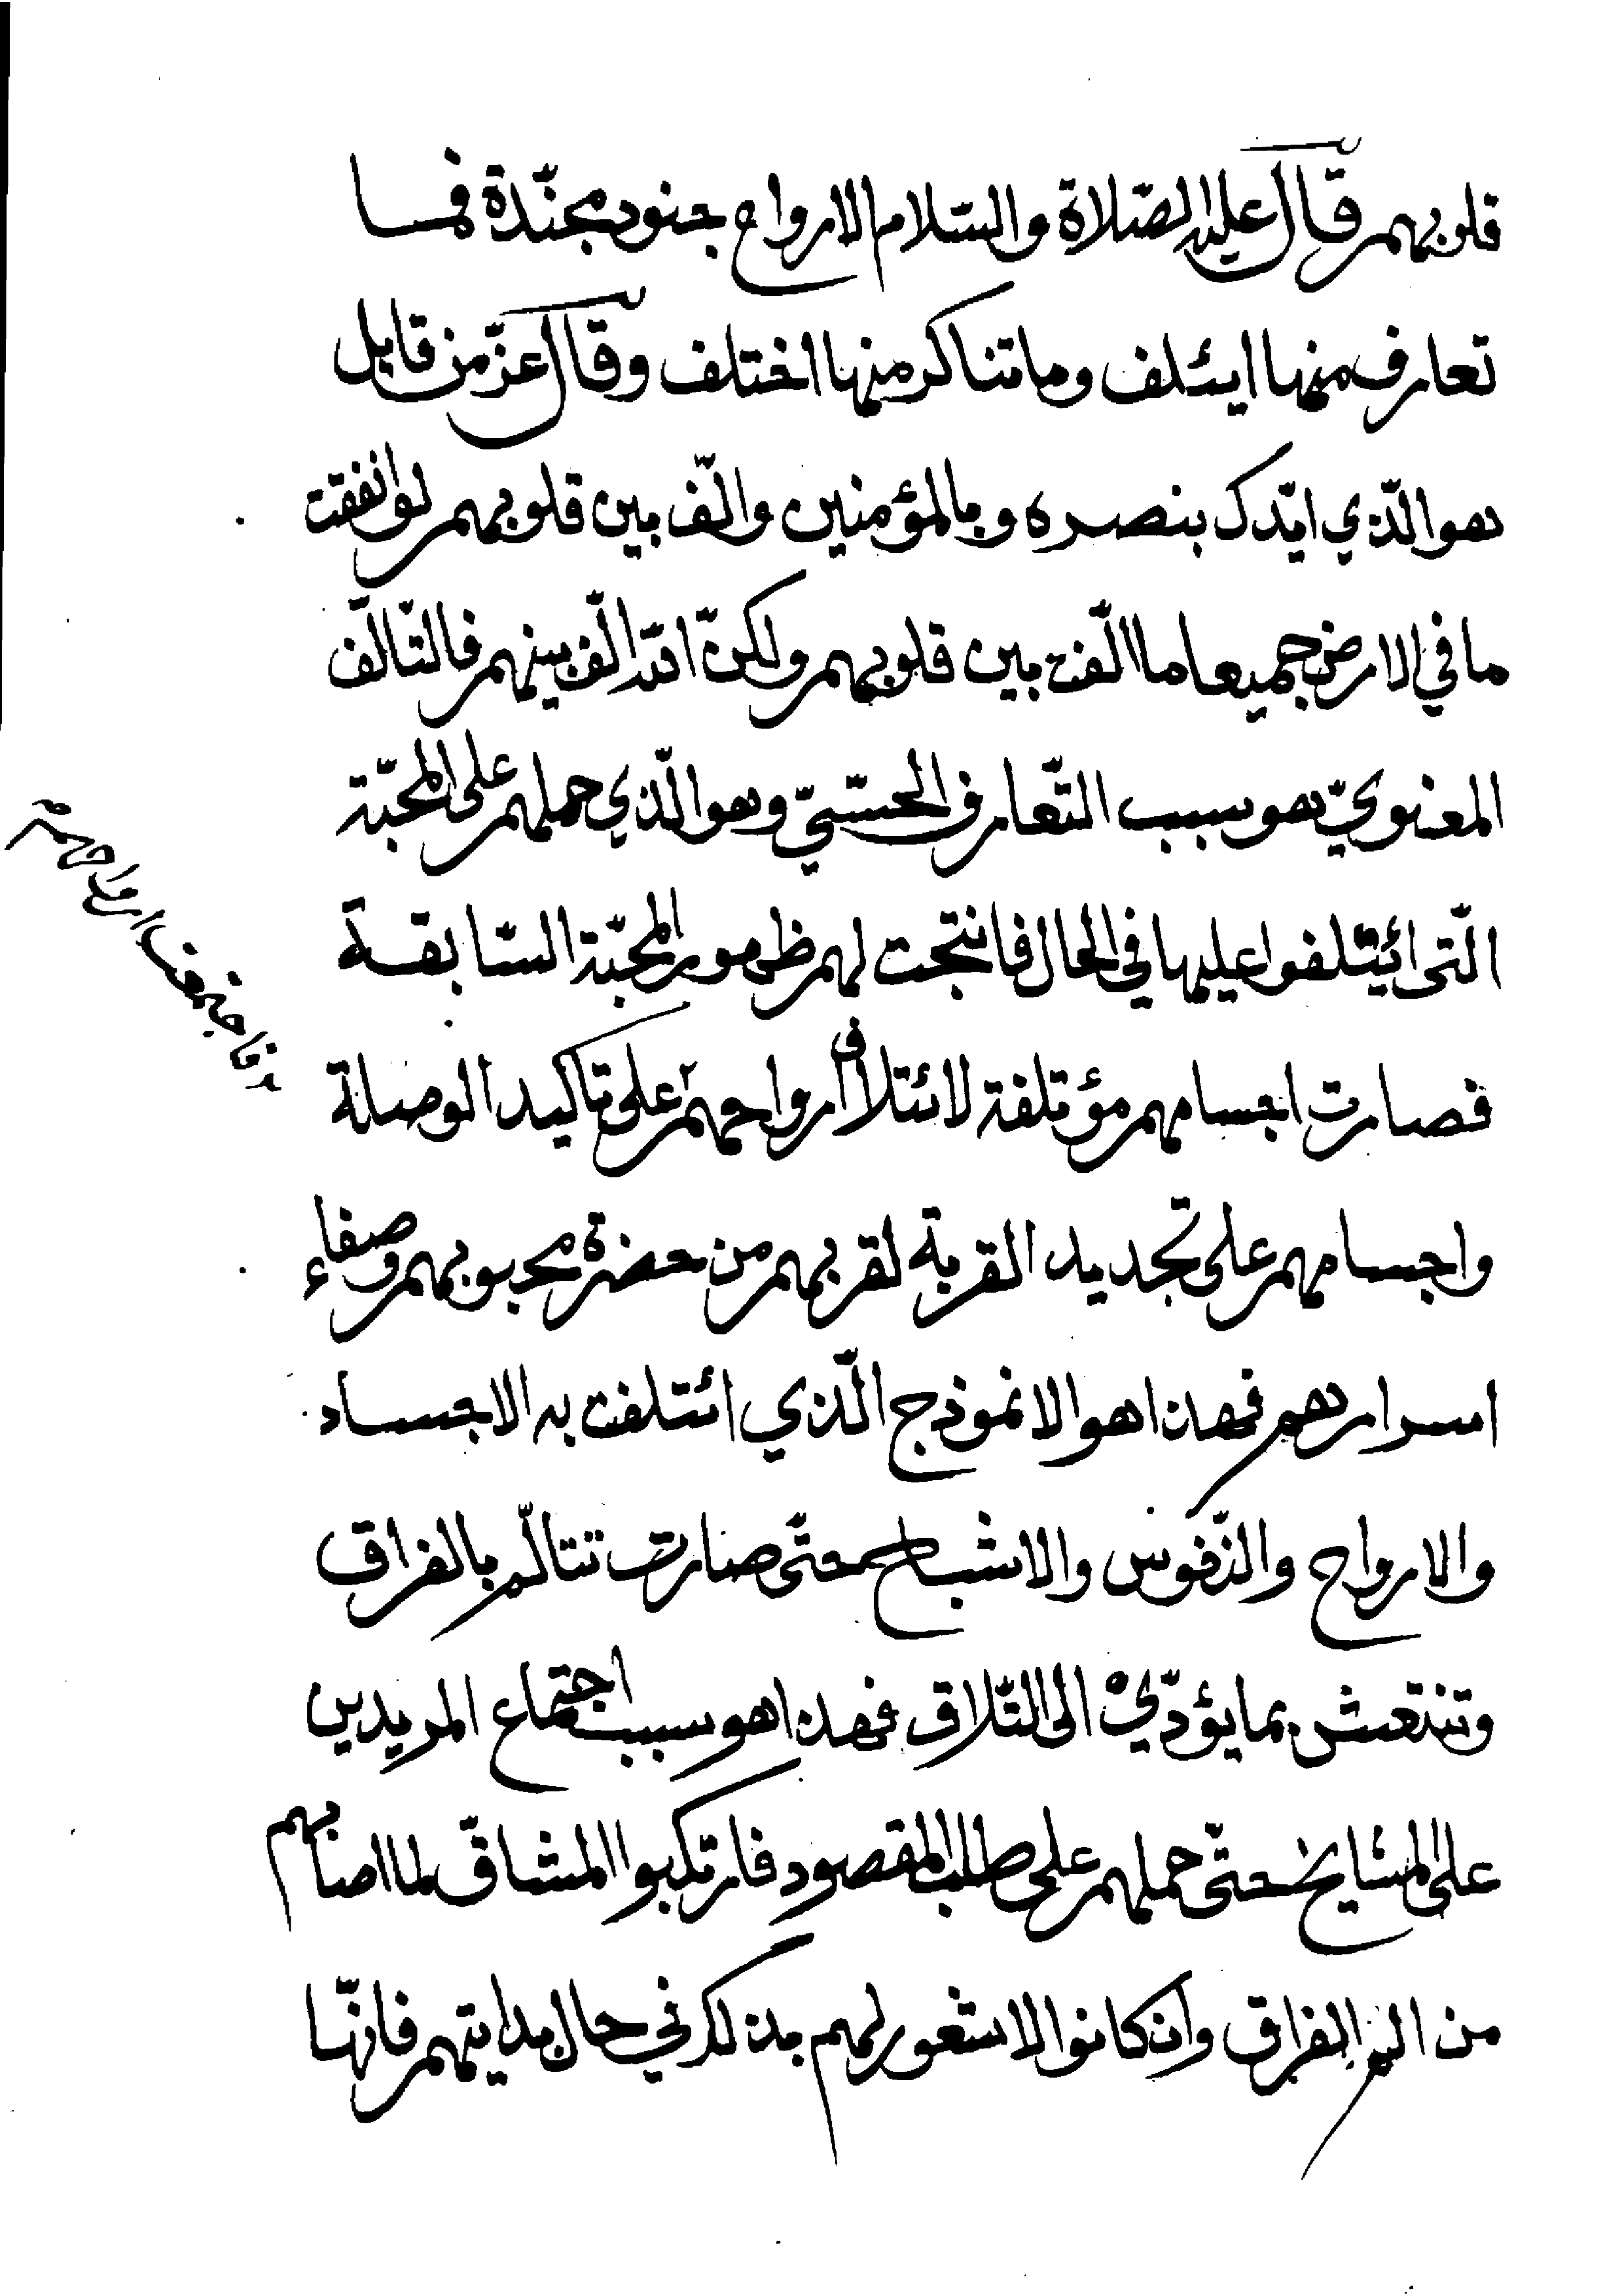 قلوبهم قال عليه الصّلاة والسّلام الارواح جنود مجنّدة فما
تعارف منها ايتلف وما تناكر منها اختلف وقال عزّ من قايل
هو الّذي ايّدك بنصره وبالمؤمنين والّف بين قلوبهم لو انفقت
ما في الارض جميعا ما الّفت بين قلوبهم ولكنّ الله الّف بينهم فالتّالّف
المعنويّ هو سبب التّعارف الحسّيّ وهو الّذي حملهم على المحبّة
الّتى ائيتلفوا عليها في الحال فانتجت لهم ظهور المحبّة السّابقة
فصارت اجسامهم مؤتلفة لائتلاف ارواحهم على تاكيد الوصلة
واجسامهم على تجديد القربة لقربهم من حضرة محبوبهم وصفاء
اسرارهم فهذا هو الانموذج الّذي ائتلفت به الاجساد
والارواح والنّفوس والاشباح حتّى صارت تتالّم بالفراق
وتنتعش بما يؤدّي الى التّلاق فهذا هو سبب اجتماع المريدين
على المشايخ حتّى حملهم على طلب المقصود فارتكبوا المشاقّ لما اصابهم
من الم الفراق وان كانوا لا شعور لهم بذلك في حال بدايتهم فانّها